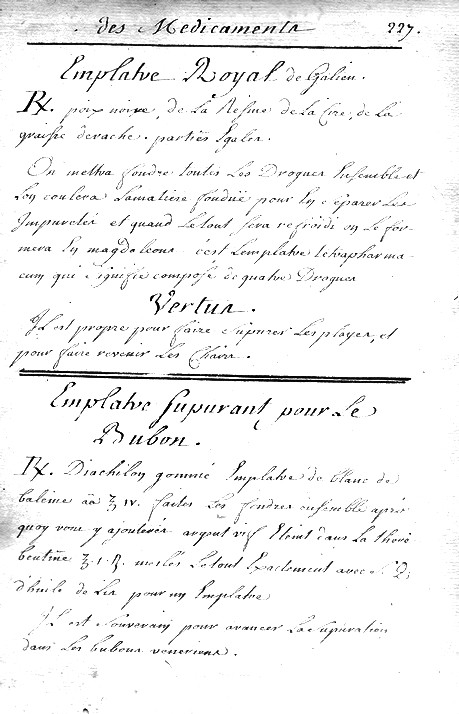 des Medicaments 227.
Emplatre Royal de Galien.
℞. poix noire, de La Résine de La Cire, de La
graisse de vache. parties Egales.
On mettra fondre toutes Les Drogues Ensemble et
Lon coulera La matiere fonduë pour En séparer Les
Impuretés et quand Le tout sera refroidi on Le for-
mera En magdaleons c'est Lemplatre tetrapharma-
cum qui signifie composé de quatre Drogues
Vertus.
Il est propre pour faire supurer Les playes, et
pour faire revenir Les Chairs.
Emplatre supurant pour Le
Bubon.
℞. Diachilon gommé Emplatre de blanc de
baleine āā ℥ IV. faites Les fondre ensemble après
quoy vous y ajouterés argent vif Eteint dans La there
bentine ℥. 1. ß. meslés Le tout Exactement avec
d'huile de Lis pour un Emplatre
Il est souverain pour avancer La supuration
dans Les bubons veneriens.